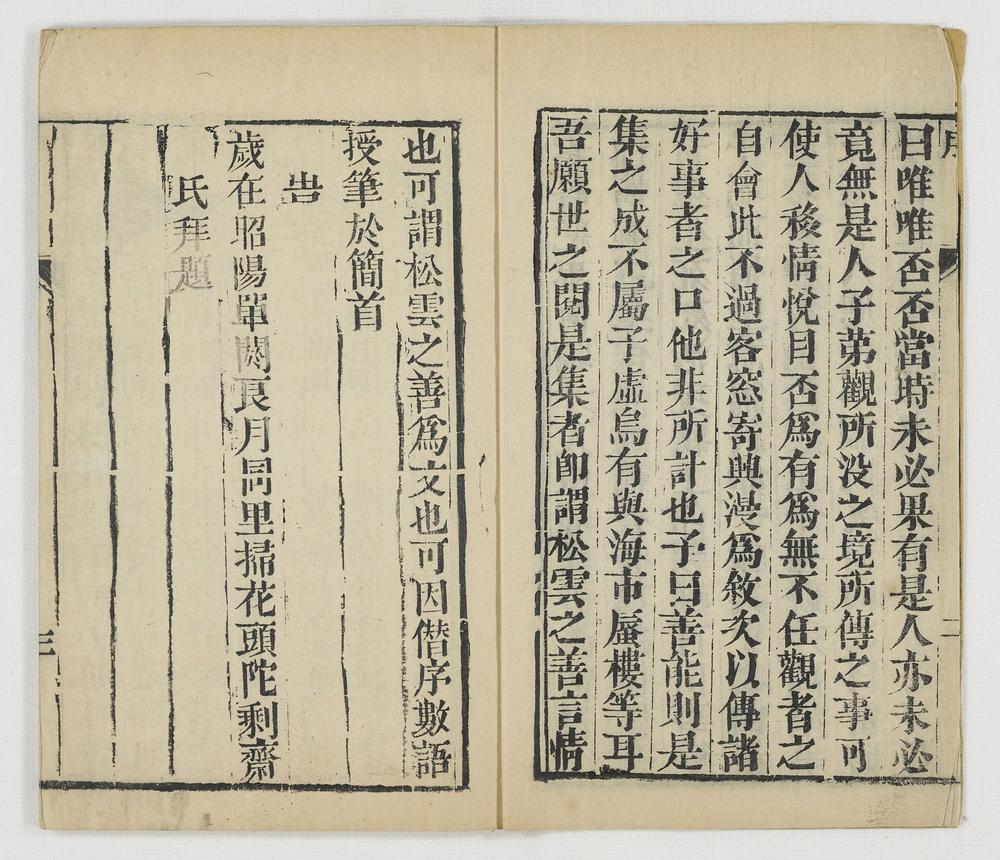 序
曰唯唯否否當時未必果有是人亦未必
竟無是人子第觀所没之境所傳之事可
使人移情悅目否爲有爲無不任觀者之
自會此不過客窓寄興漫爲敘次以傳諸
好事者之口他非所計也予曰善能則是
集之成不屬子虛烏有與海市蜃樓等耳
吾願世之閱是集者即謂松雲之善言情
二
也可謂松雲之善爲文也可因僭序數語
授筆於簡首
告
歲在昭陽單閼良月同里掃花頭陀剩齋
氏拜題
三